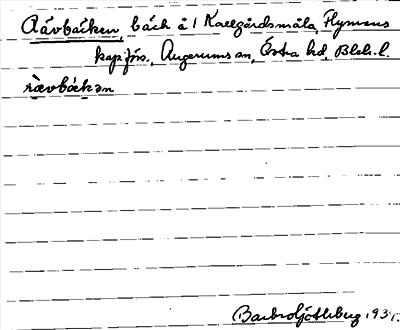 Rävbäcken, bäck å 1 Karlgårdsmåla, Flymens
kap.förs., Augerums sn, Östra hd, Blek. l.
rævbäkən
Barbro Ljötleberg 1931.